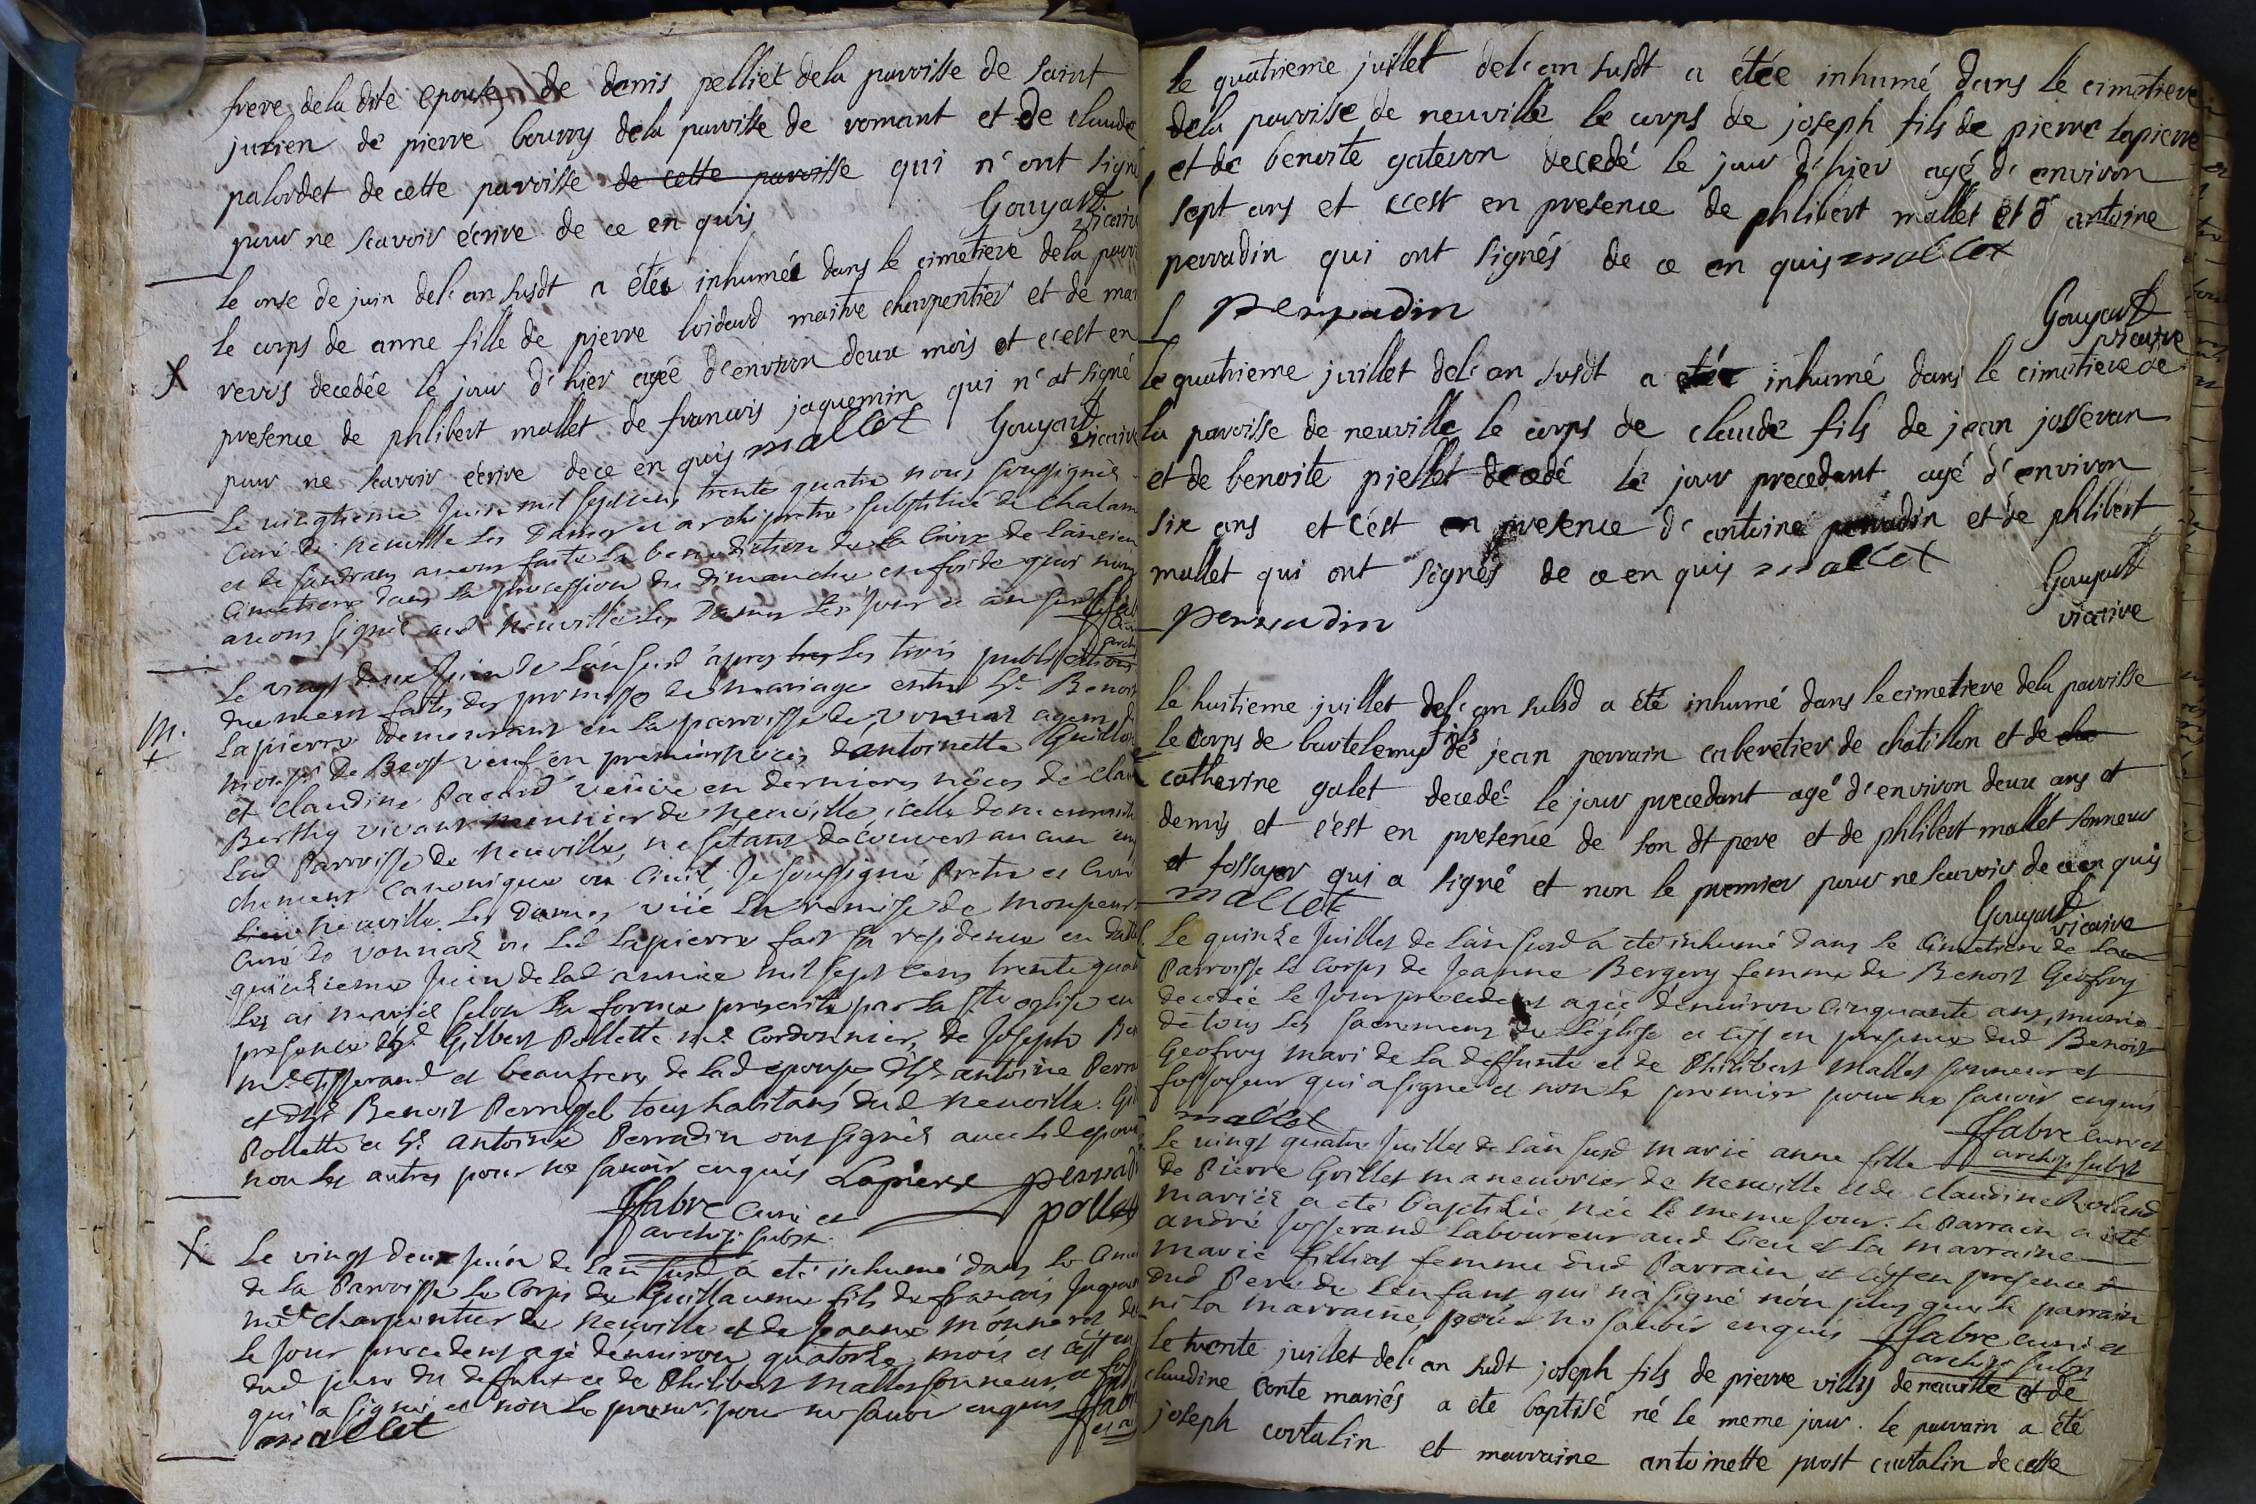 frere de la dite epouse de denis pelliet dela parroisse de saint
julien de pierre bourry dela parroisse de romant et de claude
palordet de cette parroisse de cette parroisse qui n'ont signé
pour ne scavoir écrire de ce enquis
Gouyard
vicaire
le onse de juin del'an susdt a étée inhumée dans le cimetiere dela parr
le corps de anne fille de pierre loidard maitre charpentier et de mar
verrs decedée le jour d'hier agée d'environ deux mois et c'est en
presence de phlibert mallet de francois jaquemin qui n'at signé
pour ne scavoir écrire dece enquis mallet
Gouyard
vicaire
Le vingtieme Juin mil sept cens trente quatre nous soussignés
Curé de Neuville les Dames et archiprêtre substitué de Chalam
et de Sandrans avons faite la benediction de la Croix de l'ancien
Cimetiere dans la procession du dimanche en foi de quoi nous
avons signé aud Neuville les Dames les jour et an susd
Le vingt deux Juin de l'an susd apres les trois publications
duement faites des promesses de mariage entre Sr Benoit
Lapierre demeurant en la parroisse de Vonnas agent de
monsr de Beost veuf en premieres nôces d'antoinette Guillon
et Claudine Pacoud veuve en dernieres nôces de Claude
Berthy vivant meunier de Neuville icelle demeurante
Lad Parroisse de Neuville, ne s'etant decouvert aucun em
chement Canonique ou Civil Je soussigné Pretre et Curé
dud Neuville les Dames, vüe la remise de Monsieur
Curé de Vonnas ou led Lapierre fait sa residence en datte
quinzieme Juin de lad année mil sept cens trente quatre
les ai mariés selon la forme prescrite par la ste eglise en
presence de Sr Gilbert Pollette me Cordonnier, de Joseph Ber
me Tisserand et beaufrere de lad epouse de Sr antoine Perra
et de Sr Benoit Perrussel tous habitans dud Neuville. Gil
Pollette et Sr antoine Perradin ont signés avec led epoux
non les autres pour ne savoir enquis Lapierre perradi
ffabre Curé et pollet
archip. subst.
Le vingt deux juin de l'an susd a été inhumé dans le Cime
de la Parroisse le Corps de Guillaume fils de francois Jaquem
me Charpentier de Neuville et de Jeanne Monneret de
le Jour precedent agé d'environ quatorze mois et c'est en
dud pere du deffunt et de Philibert Mallet sonneur et foss
qui a signé et non le premier pour ne savoir enquis
mallet
le quatrieme juillet del'an susdt a étée inhumé dans le cimetiere
dela parroisse de neuville le corps de joseph fils de pierre lapierre
et de benoite gateron decedé le jour d'hier agé d'environ
sept ans et c'est en presence de phlibert mallet et d'antoine
perradin qui ont signés de ce en quis mallet
perradin
Gouyard
vicaire
le quatrieme juillet del'an susdt a étée inhumé dans le cimetiere de
la paroisse de neuville le corps de claude fils de jean josseran
et de benoite piellet decedé le jour precedant agé d'environ
six ans et c'est en presence d'antoine perradin et de phlibert
mallet qui ont signés de ce en quis mallet
perradin
Gouyard
vicaire
le huitieme juillet del'an susd a été inhumé dans le cimetiere dela parroisse
le corps de bartelemy fils de jean perrain cabaretier de chatillon et de
catherine galet decedé le jour precedant agé d'environ deux ans et
demis et c'est en presence de son dt pere et de phlibert mallet sonneur
et fossoyer qui a signé et non le premier pour ne scavoir de ce en quis
mallet
Gouyard
vicaire
Le quinze Juillet de l'an susd a eté inhumé dans le Cimetiere de la
Parroisse le Corps de Jeanne Bergery femme de Benoit Geofroy
decedée le Jour precedent agée d'environ Cinquante ans, munie
de tous les sacremens de l'Eglise et c'est en presence dud Benoit
Geofroy mari de la deffunte et de Philibert Mallet sonneur et
fossoyeur qui a signé et non le premier pour ne savoir enquis
mallet
ffabre curé et
archip. subst
Le vingt quatre Juillet de l'an susd marie anne fille
de Pierre Grillet maneuvrier de Neuville et de Claudine Roland
mariés a eté baptisée née le meme Jour. le Parrain a été
andré Josserand laboureur aud lieu et la marraine
marie fillias femme dud Parrain et c'est en presence
dud Pere de l'enfant qui n'a signé non plus que le parrain
ni la marraine, pour ne savoir enquis ffabre curé et
archip. subst
Le trente juillet del'an sudt joseph fils de pierre villis de neuville et de
claudine conte mariés a eté baptisé né le meme jour. le parrain a été
joseph curtalin et marraine antoinette prost curtalin de cette